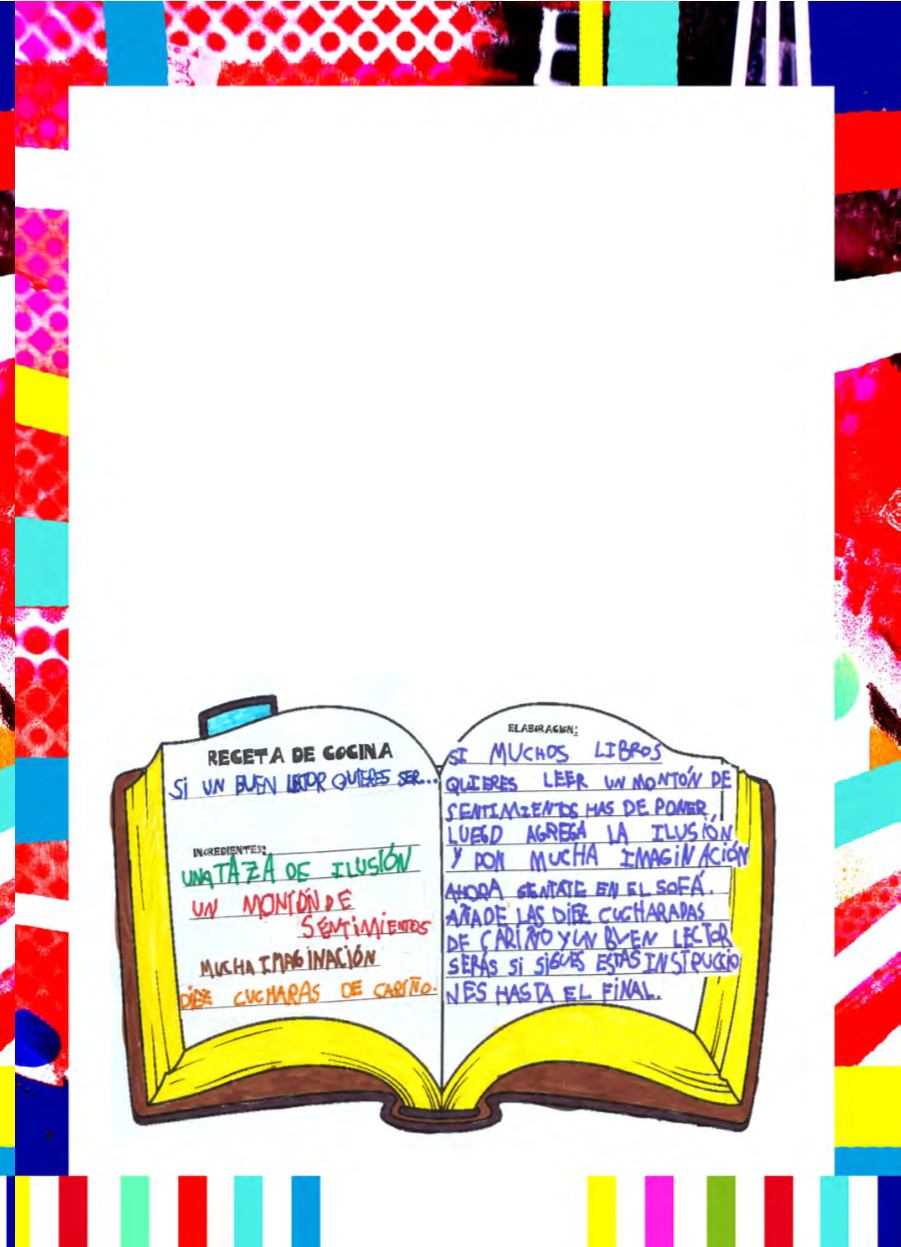 RECETA DE COCINA
SI UN BUEN LECTOR QUIERES SER...
INGREDIENTES:
UNA TAZA DE ILUSIÓN
UN MONTÓN DE
SENTIMIENTOS
MUCHA IMAGINACIÓN
DIEZ CUCHARAS DE CARIÑO.
ELABORACION:
SI MUCHOS LIBROS
QUIERES LEER UN MONTÓN DE
SENTIMIENTOS HAS DE PONER,
LUEGO AGREGA LA ILUSIÓN
Y PON MUCHA IMAGINACIÓN
AHORA SENTATE EN EL SOFÁ.
AÑADE LAS DIEZ CUCHARADAS
DE CARIÑO Y UN BUEN LECTOR
SERÁS SI SIGUES ESTAS INSTRUCCIO
NES HASTA EL FINAL.